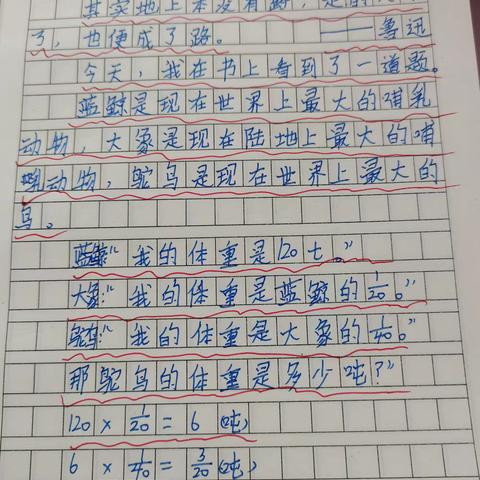 其实地上本没有路，走的
了，也便成了路。 ——鲁迅
今天，我在书上看到了一道题。
蓝鲸是现在世界上最大的哺乳
动物，大象是现在陆地上最大的哺
乳动物，鸵鸟是现在世界上最大的
鸟。
蓝鲸：“我的体重是120 t。”
大象：“我的体重是蓝鲸的1/20。”
鸵鸟：“我的体重是大象的1/40。”
那鸵鸟的体重是多少吨？”
120 × 1/20 = 6 (吨)
6 × 1/40 = 3/20 (吨)